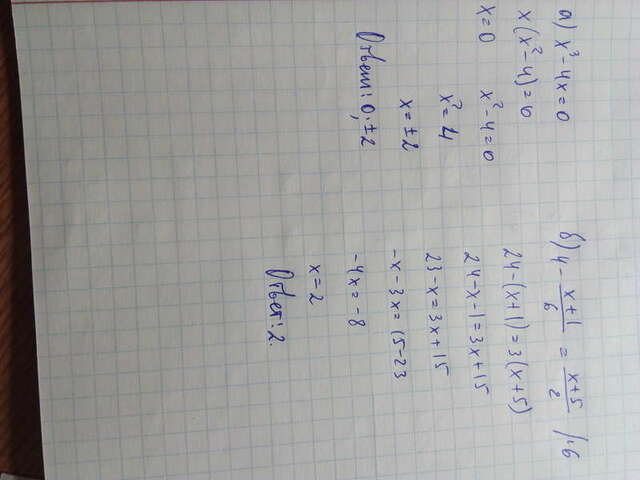 а) x³ - 4x = 0
x (x² - 4) = 0
x = 0 x² - 4 = 0
x² = 4
x = ±2
Ответ: 0, ±2
б) 4 - (x+1)/6 = (x+5)/2 /·6
24 - (x+1) = 3(x+5)
24 - x - 1 = 3x + 15
23 - x = 3x + 15
-x - 3x = 15 - 23
-4x = -8
x = 2
Ответ: 2.